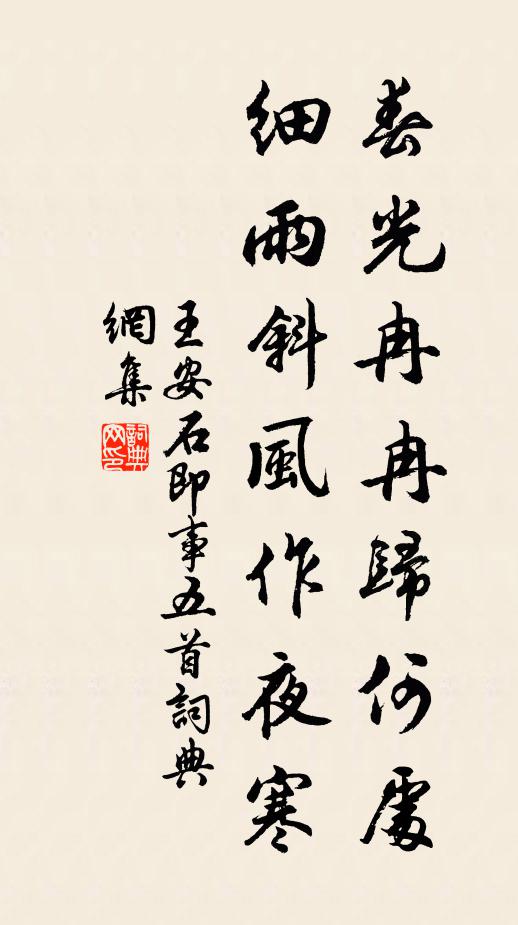 春光冉冉歸何處
細雨斜風作夜寒
王安石即事五首詞典
網集
詞典
网印